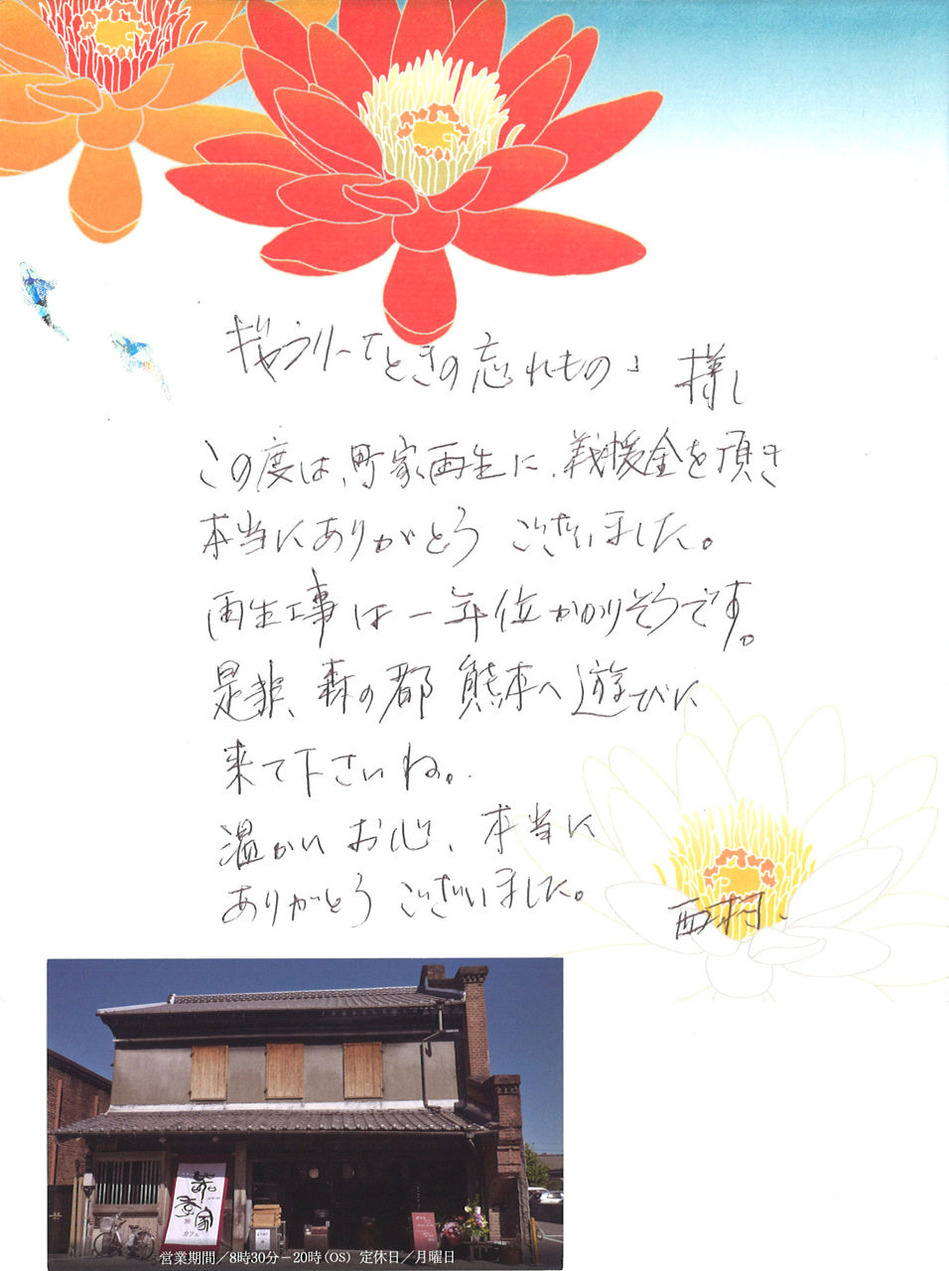 ギャラリー「ときの忘れもの」 様
この度は、町家再生に、義援金を頂き
本当にありがとう ございました。
再生工事は一年位かかりそうです。
是非、森の都 熊本へ遊びに
来て下さいね。
温かい お心、本当に
ありがとう ございました。
西村
カフェ
営業期間／8時30分－20時(OS) 定休日／月曜日